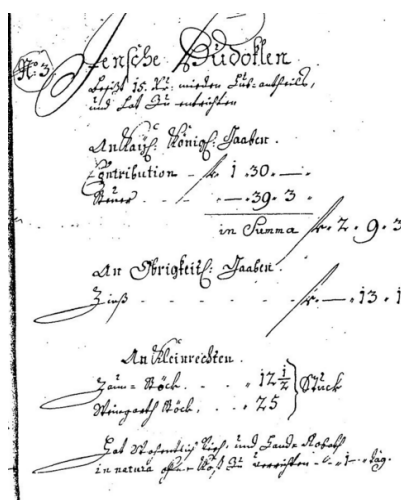 No: 3.
Jensche Budoklen
besizt 15. Xr: mieder Hubs-antheils,
und hat Zu entrichten
An Kaÿs: Königl: Gaaben.
Contribution - fr. 1.30. —.
Steuer — . 39. 3
in Summa fr. 2. 9. 3
An Obrigkeitl: Gaaben.
Zinß - - - fr. — . 13. 1
An Kleinrechten.
Zaun = Stöck. . . . 12 1/2 } Stück
Weingarth Stöck. . . 25
Hat Wochentlich Zieh- und Hand-Roboth
in natura ohne Kost Zu verrichten - 1 - täg.